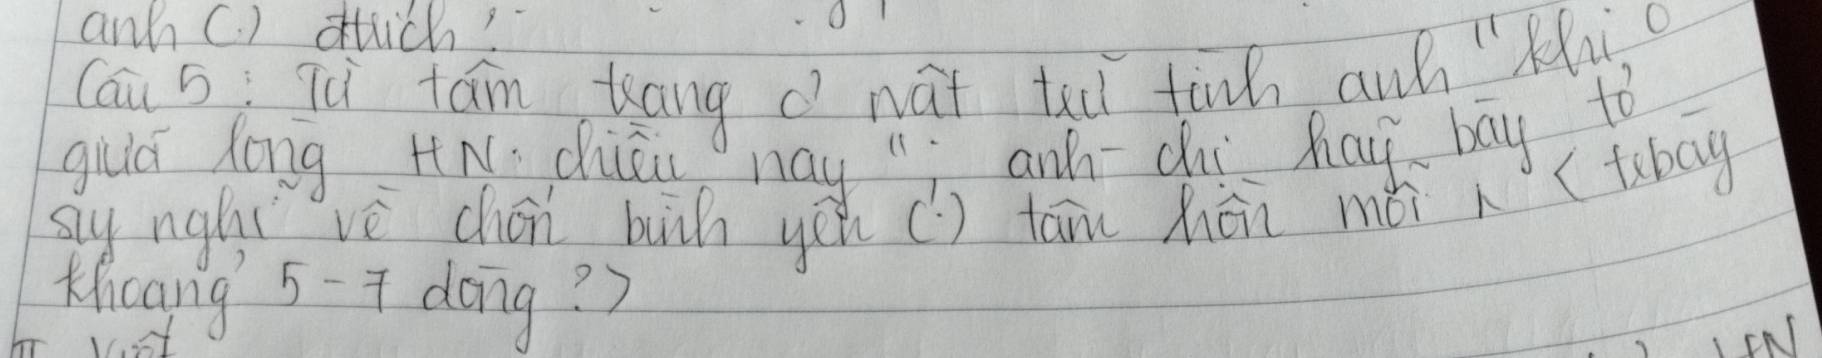 anh (.) đthích?
Câu 5: Từ tâm trạng ở nất trữ tình anh "khi ở
giữa lòng HN chiều nay": anh-chị hãy bày tỏ
suy nghĩ về chốn bình yên (.) tâm hồn mỗi < trbày
khoảng 5-7 dòng?>
II Viết
HN